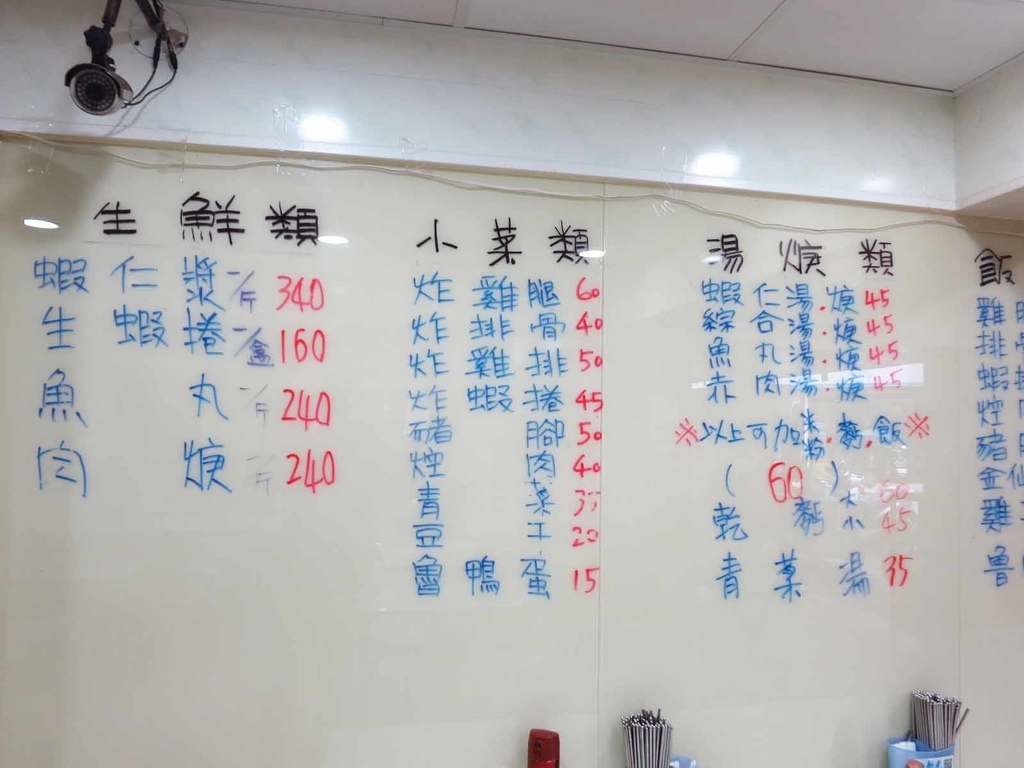 生鮮類
蝦仁漿 一/斤 340
生蝦捲 一/盒 160
魚丸 一/斤 240
肉焿 一/斤 240
小菜類
炸雞腿 60
炸排骨 40
炸雞排 50
炸蝦捲 45
豬腳 50
焢肉 40
青菜 35
豆干 20
魯鴨蛋 15
湯焿類
蝦仁湯.焿 45
綜合湯.焿 45
魚丸湯.焿 45
赤肉湯.焿 45
※以上可加米粉.麵.飯※
(60)
乾麵 大 60
小 45
青菜湯 35
飯
雞
排
蝦
焢
豬
金仙
雞
魯